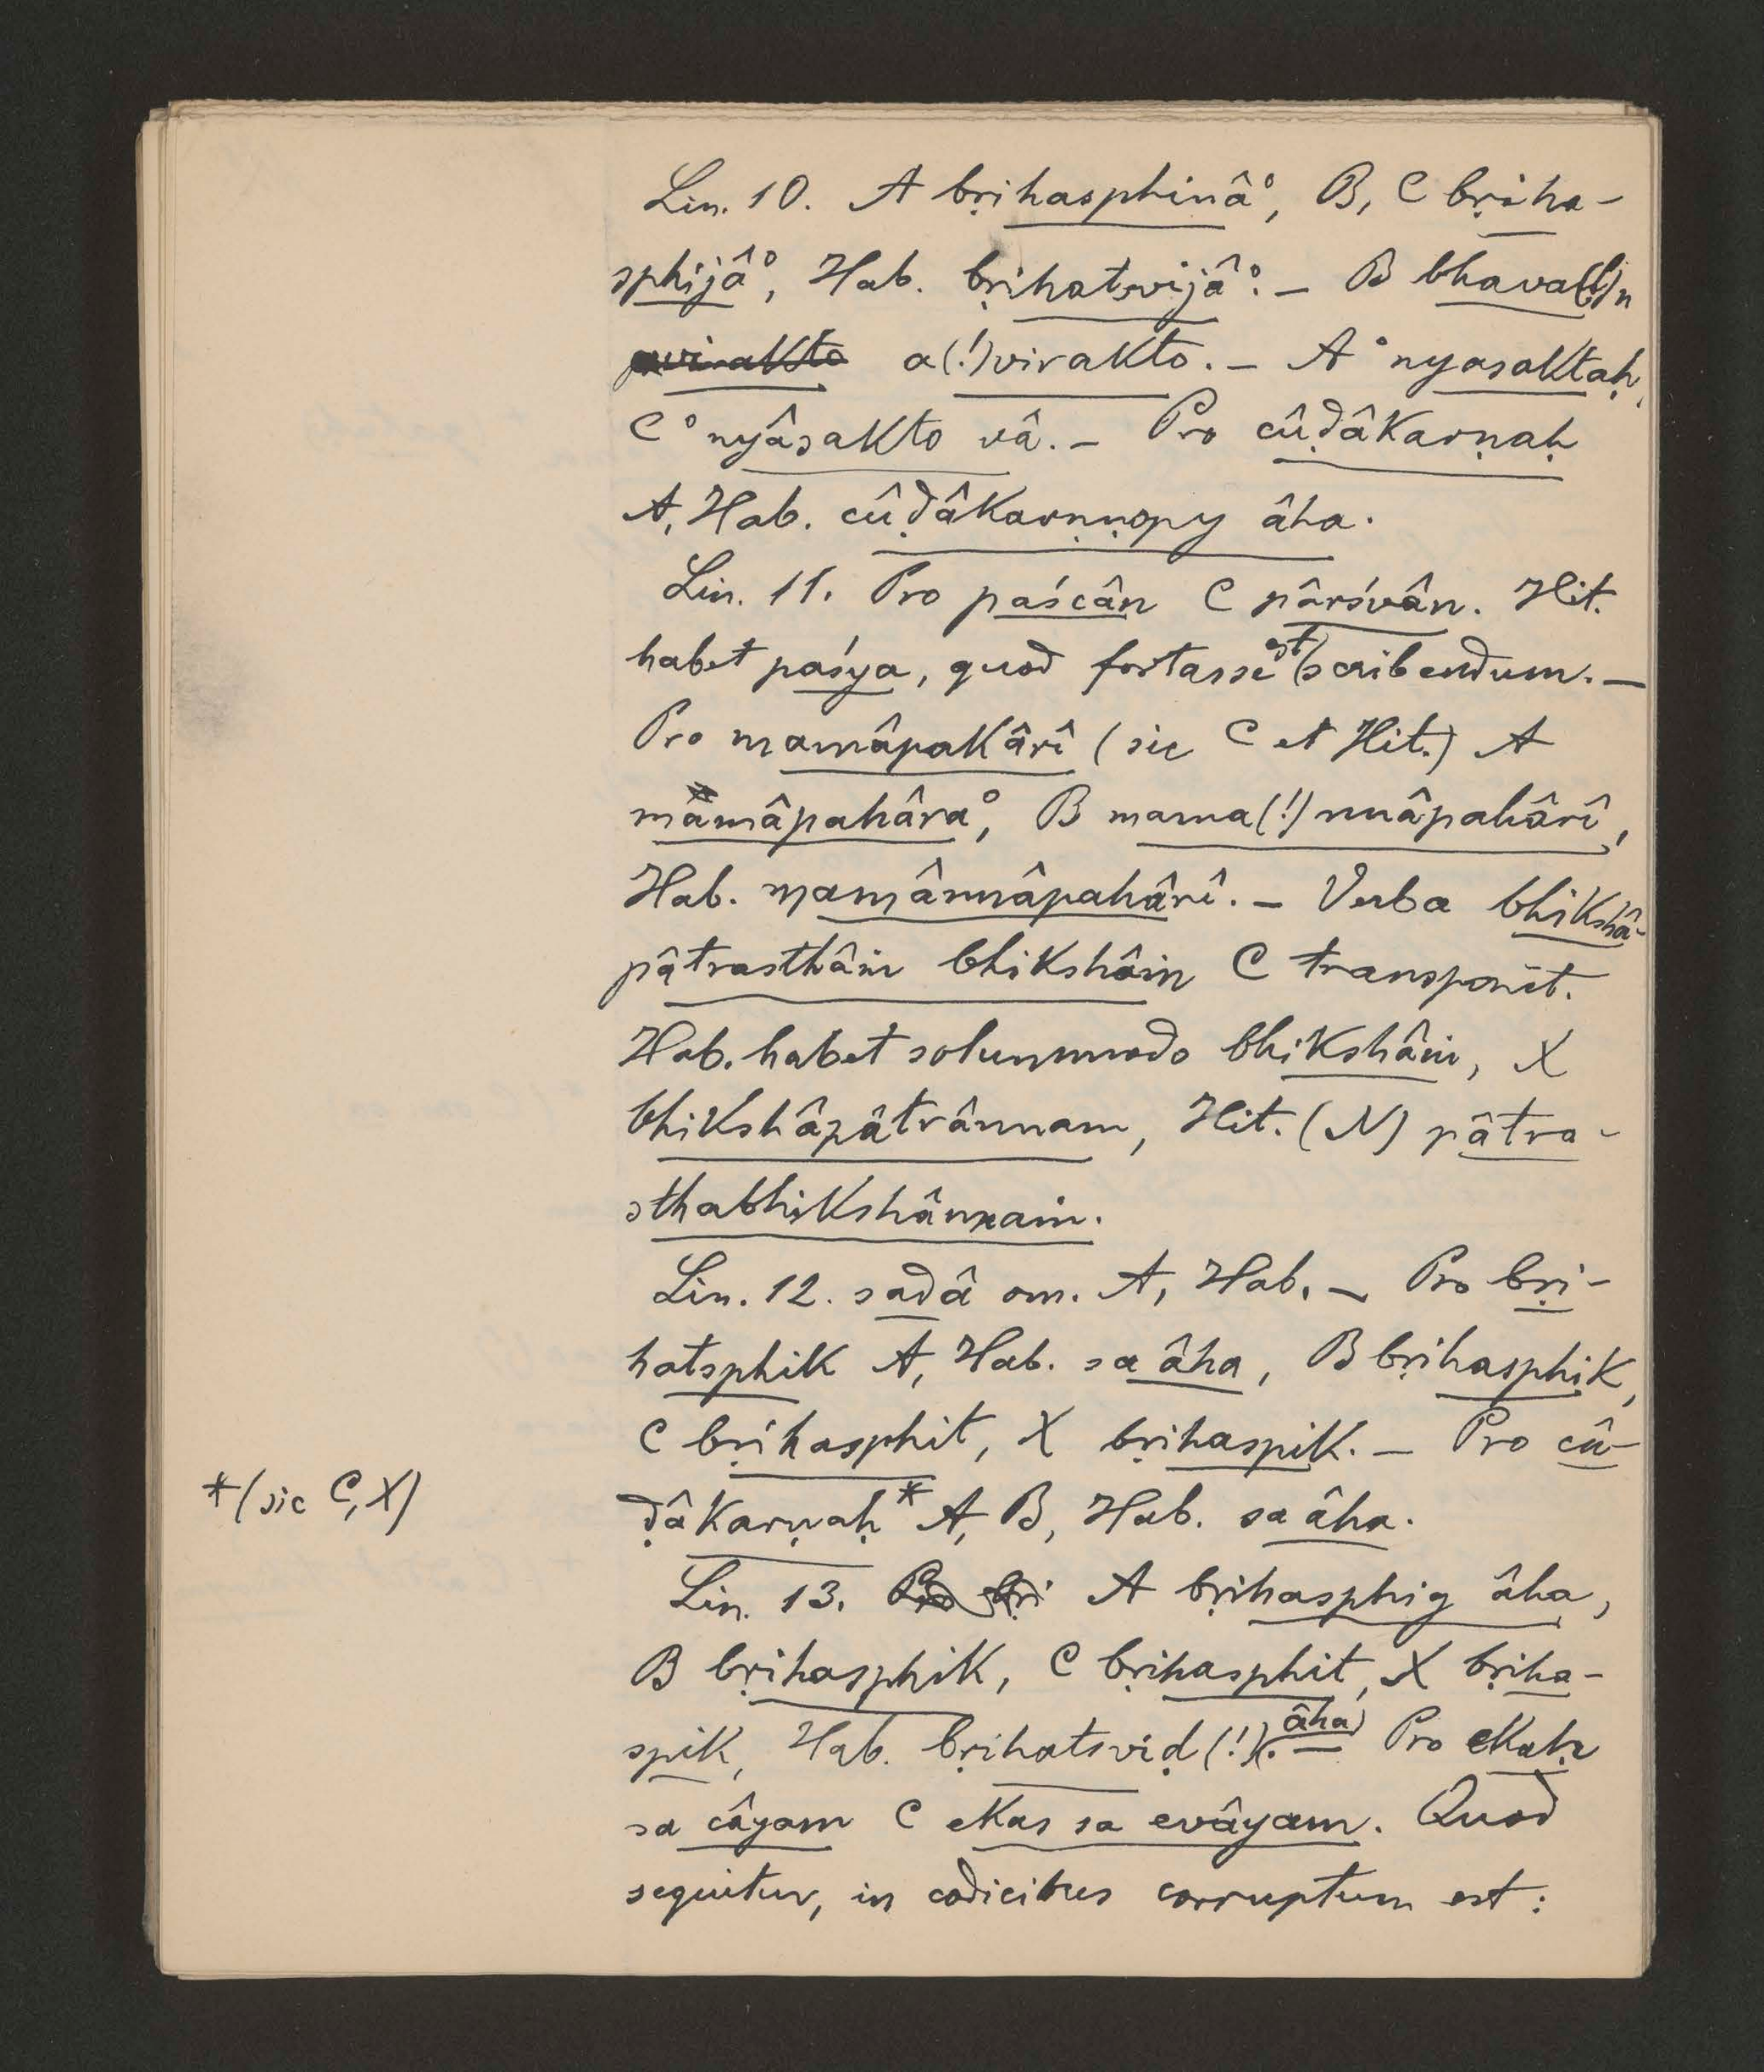 Lin. 10. A bṛihasphinâ°, B, C bṛiha-
sphijâ°, Hab. bṛihatsvijâ°. – B bhava(!)n
avirakto a(!)virakto. – A °nyasaktaḥ,
C °nyâsakto vâ. – Pro cûḍâkarṇaḥ
A, Hab. cûḍâkarṇṇopy âha.
Lin. 11. Pro paścân C pârśvân. Hit.
habet paśya, quod fortasse est scribendum. –
Pro mamâpakârî (sic C et Hit.) A
mamâpahâra°, B mama(!)nnâpahârî,
Hab. mamânnâpahârî. – Verba bhikshâ-
pâtrasthâṁ bhikshâṁ C transponit.
Hab. habet solummodo bhikshâṁ, X
bhikshâpâtrânnam, Hit. (N) pâtra-
sthabhikshânnaṁ.
Lin. 12. sadâ om. A, Hab. – Pro bṛi-
hatsphik A, Hab. sa âha, B bṛihasphik,
C bṛihasphit, X bṛihaspik. – Pro cû-
ḍâkarṇaḥ* A, B, Hab. sa âha.
*(sic C, X)
Lin. 13. Pro bṛi A bṛihasphig âha,
B bṛihasphik, C bṛihasphit, X bṛiha-
spik, Hab. bṛihatsviḍ(!) âha. – Pro ekaḥ
sa câyam C ekas sa evâyam. Quod
sequitur, in codicibus corruptum est: